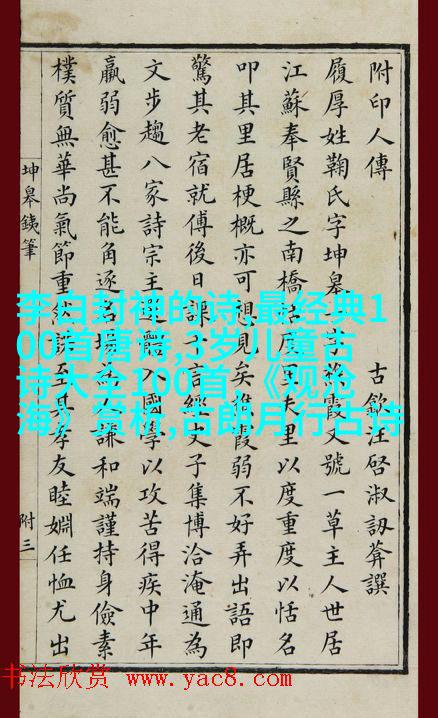 附印人傳 古歙汪啓淑訒葊撰
履厚姓鞠氏字坤皋一字霞又號一草主人世居
江蘇奉賢縣之南橋度里夫里以度重度以恬名
叩其里居梗概亦可想見矣霞弱不好弄出語即
驚其老宿就傅後日課千言經史子集博洽淹通為
文步趨八家詩宗主入國學以攻苦得疾中年
羸弱愈甚不能角逐名場為人謙和端謹持身儉素
樸質無華尚氣節重然諾至其孝友睦婣任恤尤出
坤皋銕筆
附三
李白封神的诗,最经典1
00首唐诗,3岁儿童古
诗大全100首,《观沧
海》赏析,古朗月行古诗
书法欣赏 www.yac8.com